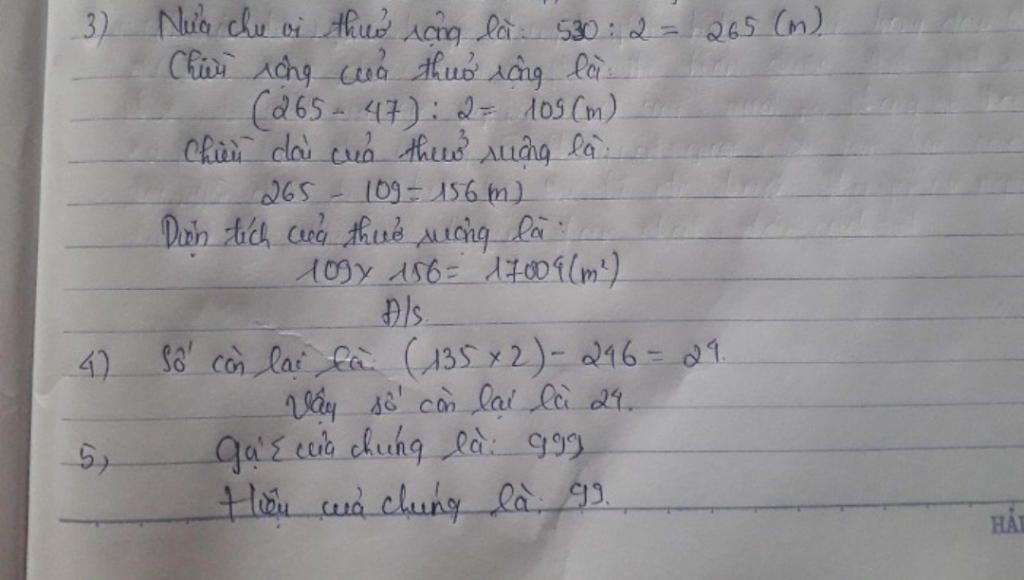 3) Nửa chu vi thuở rộng là: 530 : 2 = 265 (m)
Chiều rộng cuả thuở rộng là:
(265 - 47) : 2 = 109 (m)
Chiều dài cuả thuở ruộng là:
265 - 109 = 156 m)
Diện tích cuả thuở ruộng là:
109 x 156 = 17004 (m²)
Đ/s.
4) Số còn lại là: (135 x 2) - 246 = 24.
Vậy số còn lại là 24.
5, Gọi Σ cuả chúng là: 999
Hiệu cuả chúng là: 99.
HẢI